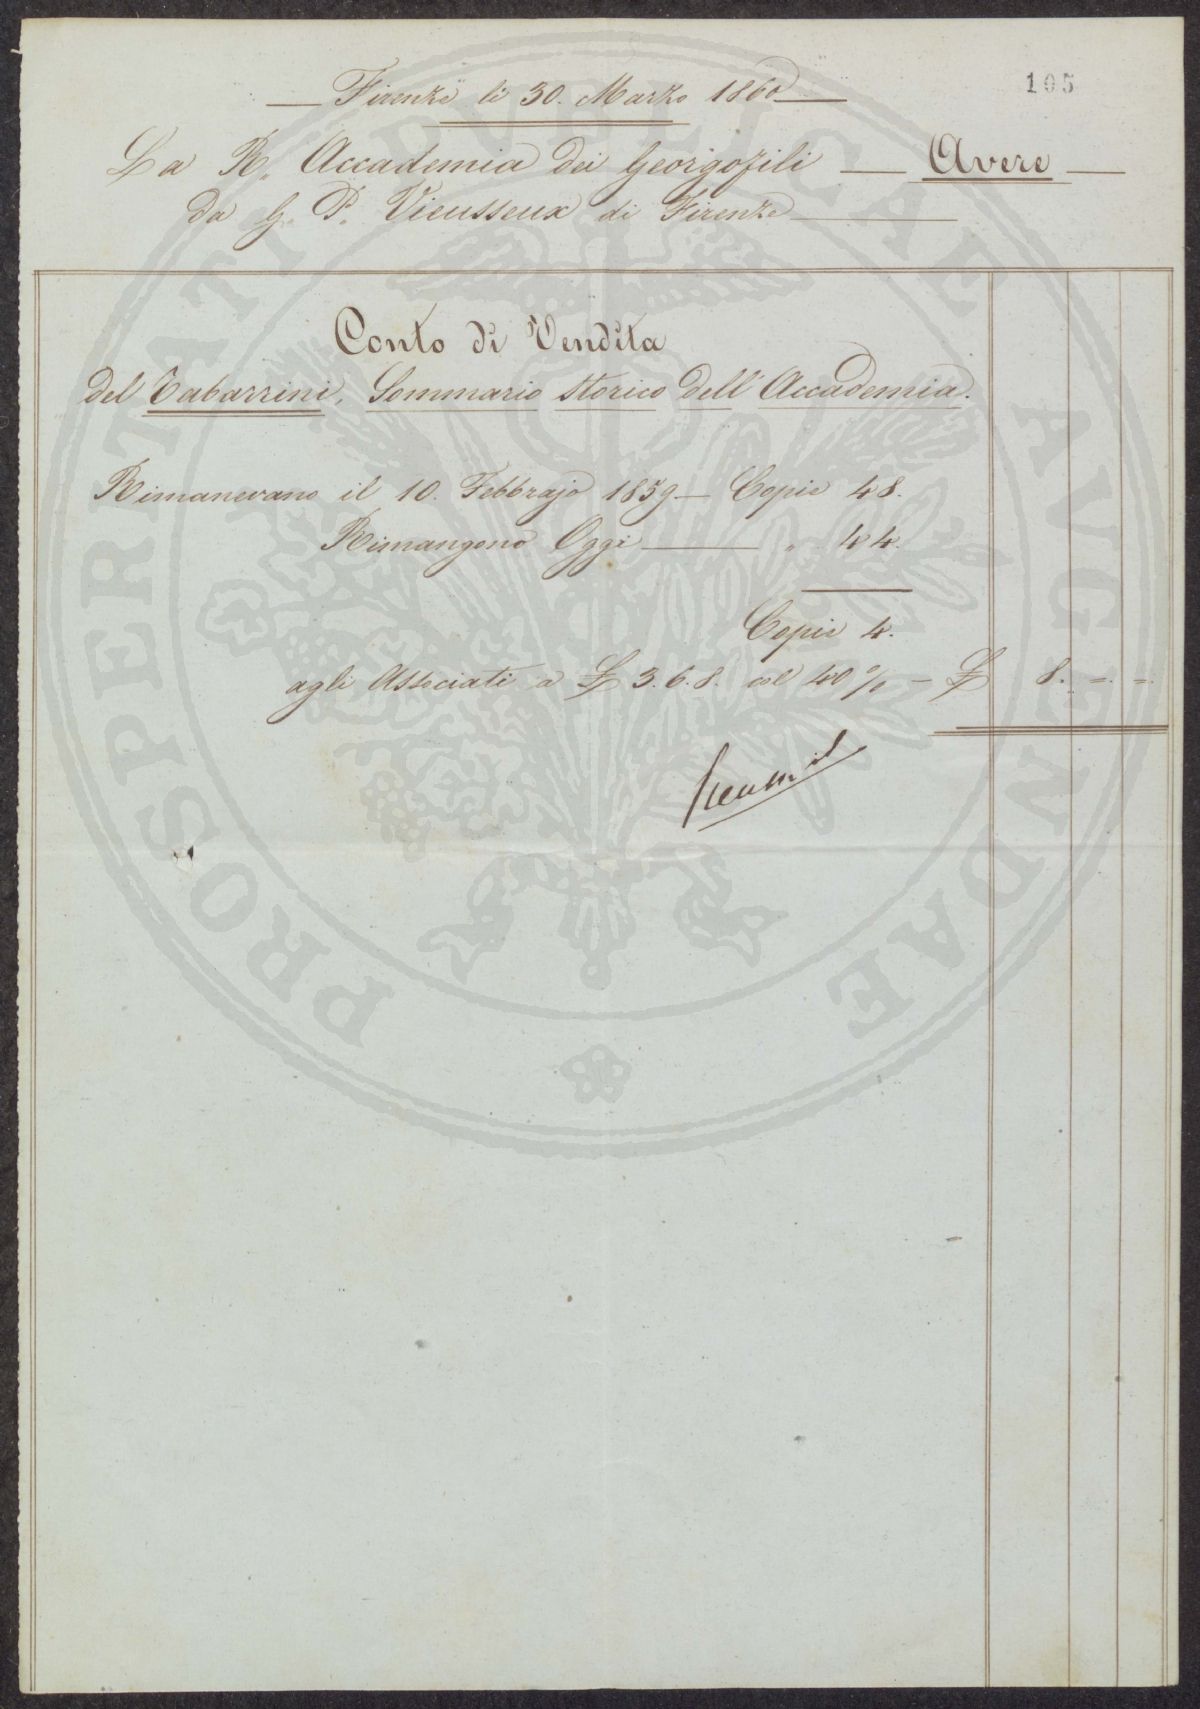 105
Firenze li 30. Marzo 1860
La R. Accademia dei Georgofili — Avere
Da G. P. Vieusseux di Firenze
Conto di Vendita
del Tabarrini, Sommario storico dell'Accademia.
Rimanevano il 10. Febbrajo 1859 — Copie 48.
Rimangono Oggi — " 44.
Copie 4.
agli Associati a £ 3.6.8. col 40 % — £ 8. = . = .
PROSPERITATI PVBLICAE AVGENDAE